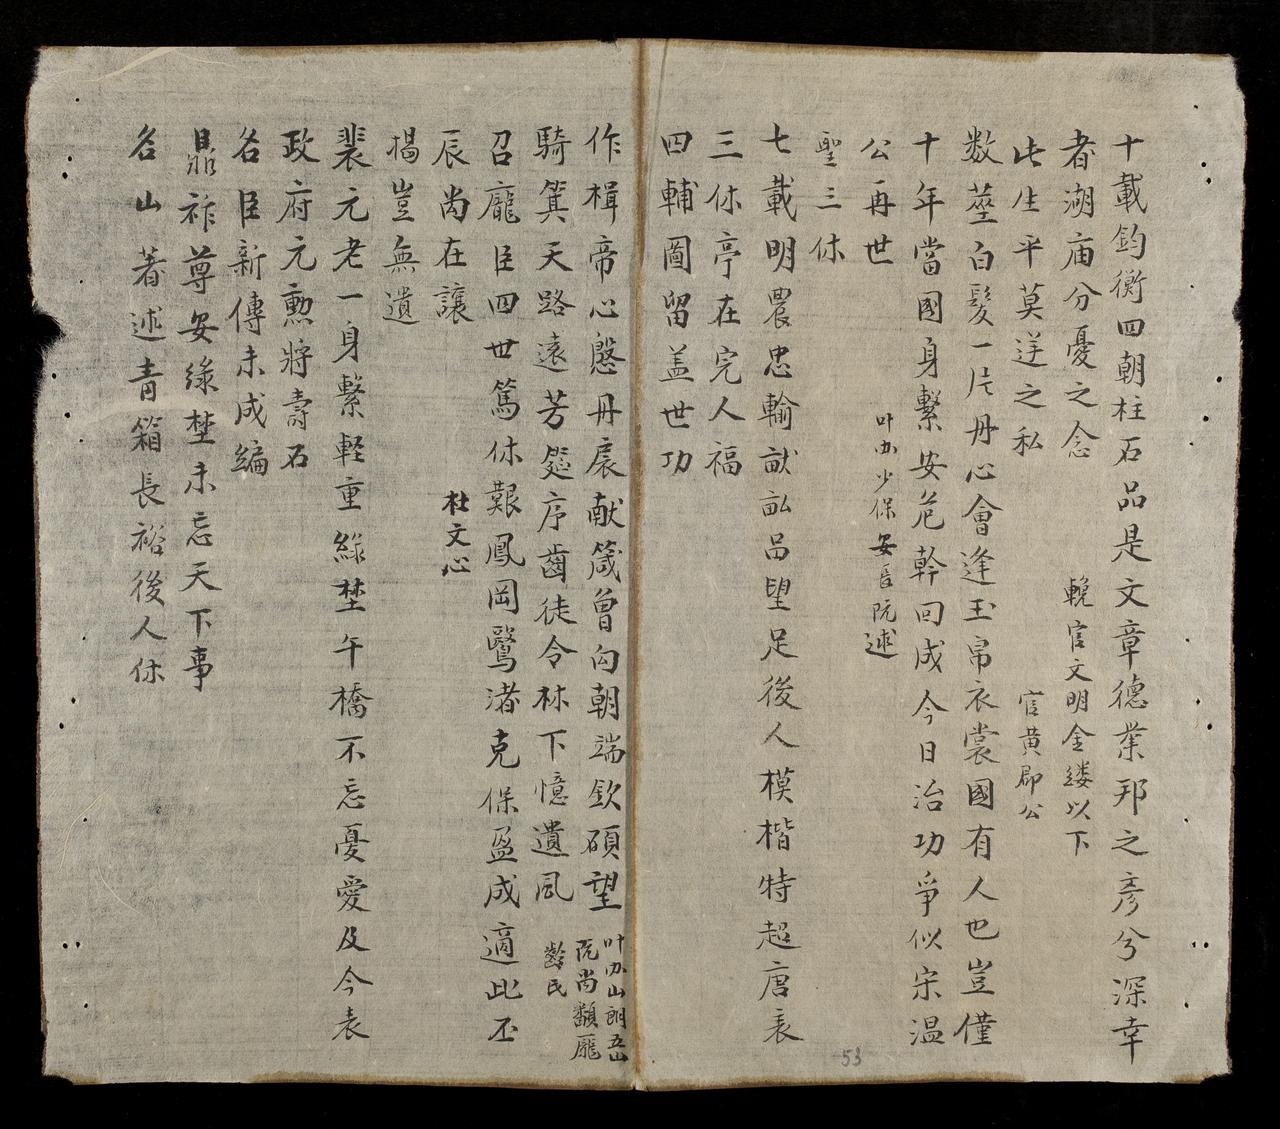 十載鈞衡四朝柱石品是文章德業邦之彥兮深幸
耆湖庙分憂之念
輓官文明金縷以下
此生平莫迋之私
官黄郡公
数莖白髮一片丹心會逢玉帛衣裳國有人也豈僅
十年當國身繫安危幹回成今日治功爭似宋温
公再世
叶办少保安長阮述
聖三休
七載明農忠輸畎畝品望足後人模楷特超唐表
三休亭在完人福
四輔圖留盖世功
作楫帝心慇丹扆献箴曾向朝端欽碩望
叶办山朗
阮尚
騎箕天路遠芳筵序齒徒令林下憶遺風
召龐臣四世篤休艱鳳岡鷖渚克保盈成適此丕
辰尚在讓
杜文心
揭豈無遺
裴元老一身繫輕重綠埜午橋不忘憂愛及今表
政府元勲將壽石
名臣新傳未成編
鼎祚尊安綠埜未忘天下事
名山著述青箱長裕後人休
53